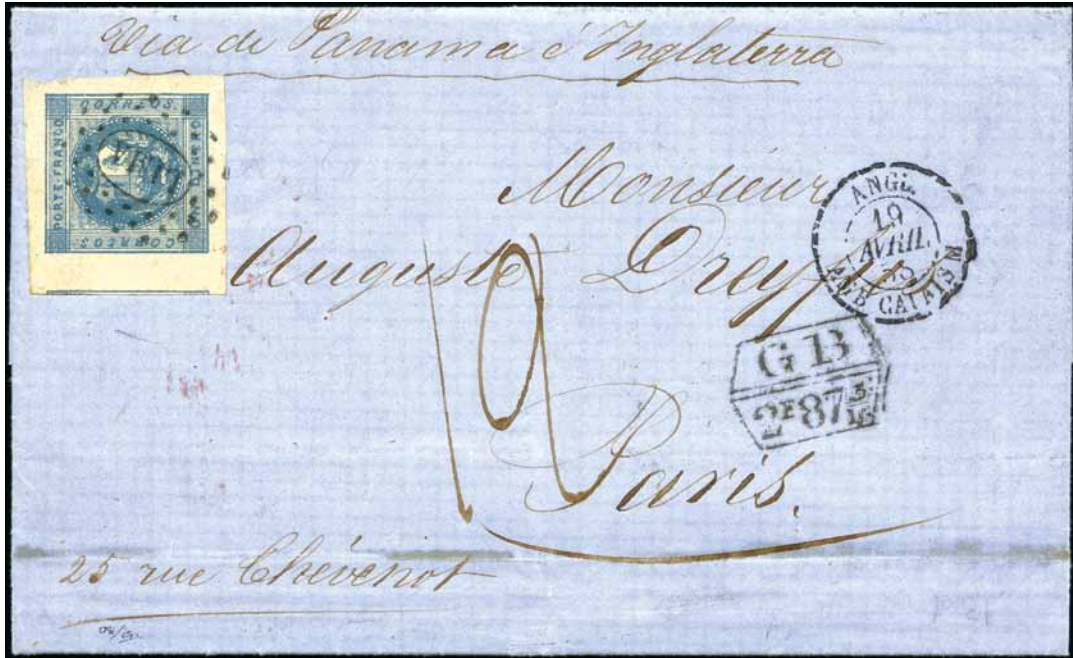 Via de Panama é Inglaterra
CORREOS
PORTE FRANCO
CORREOS
Monsieur
Auguste Dreyfus
ANGL.
19
AVRIL
AMB. CALAIS M
12
G B
2F 87 5/10
Paris.
25 rue Chévenot